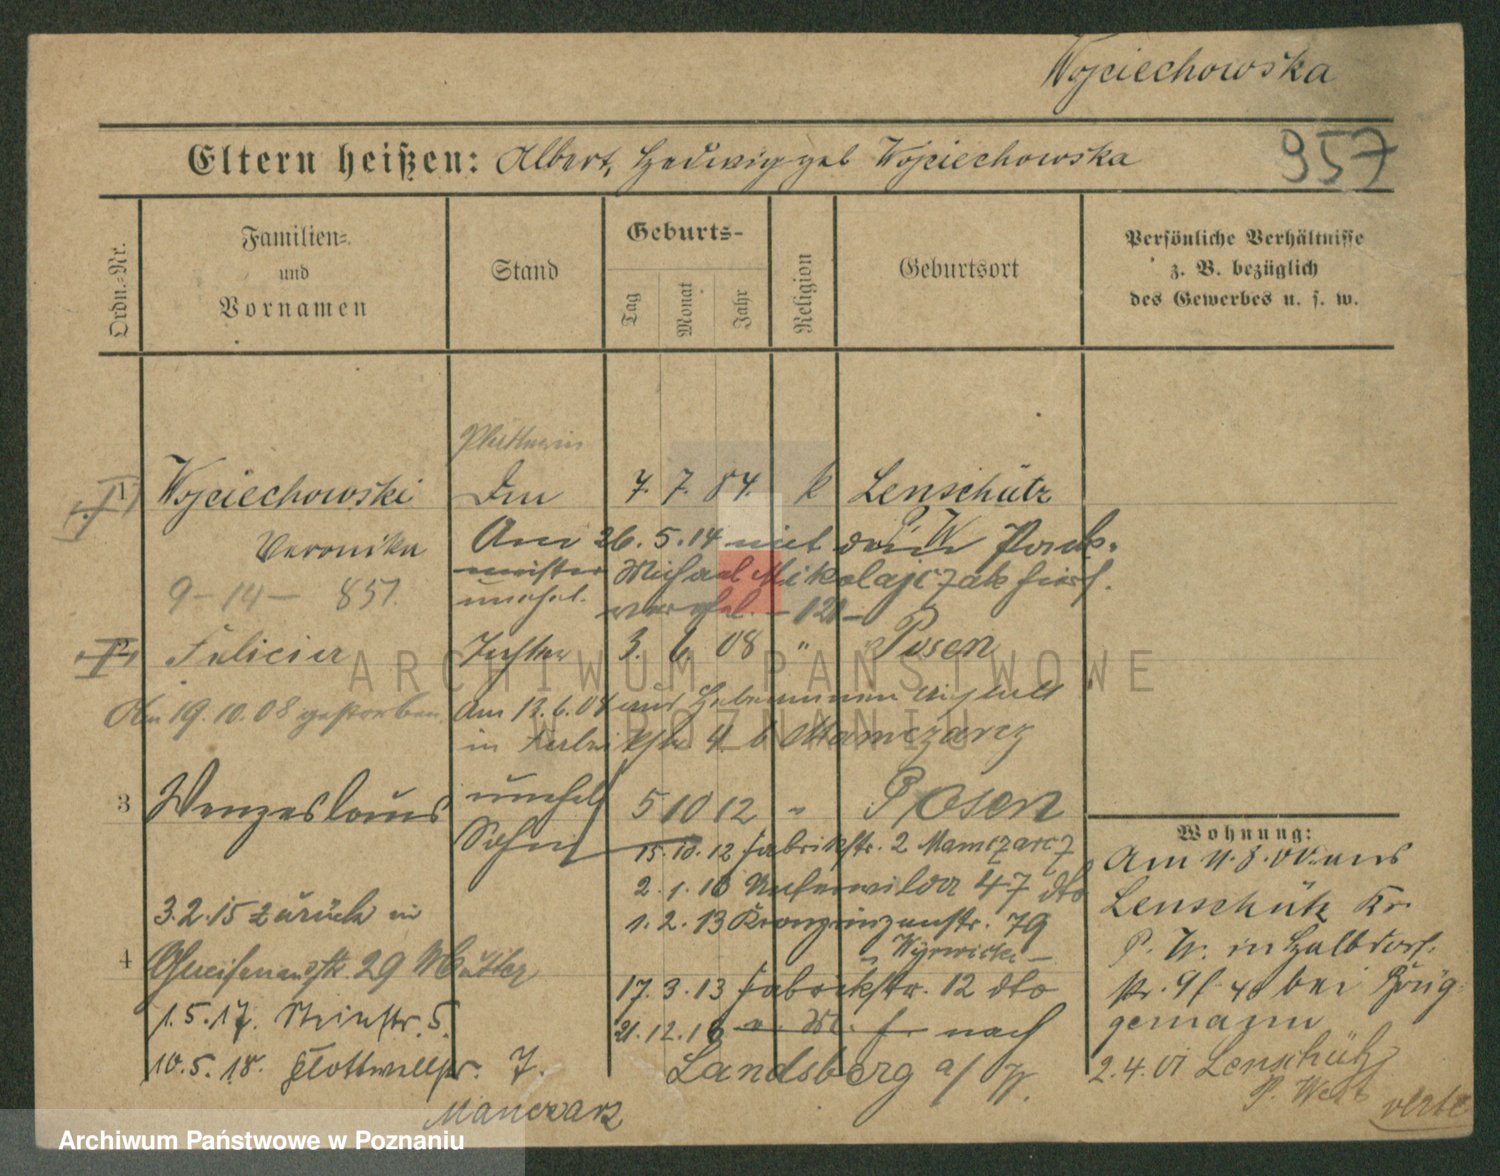 Wojciechowska
Eltern heißen: Albert, Hedwig geb Wojciechowska
957
Ordn.-Nr.
Familien- und Vornamen
Stand
Geburts-
Tag
Monat
Jahr
Religion
Geburtsort
Persönliche Verhältnisse
z. B. bezüglich
des Gewerbes u. s. w.
Plätterin
1 Wojciechowski 7. 7. 84. k Lenschütz
P. W.
Veronika Am 26. 5. 14 mit dem
Michael Mikolajczak
9-14- 857. unehel. -121-
2 Felicia Tochter 3. 6. 08 " Posen
Am 19. 10. 08 gestorben Am 13. 6. 08 aus
in 4 b Mamczarcz
3 Wenzeslaus unehel 5 10 12 " Posen
Sohn
15. 10. 12 Fabrikstr. 2 Mamczarcz
2. 1. 13 Unterwilda 47 dto
3. 2. 15 zurück in
1. 2. 13 Kronprinzenstr. 79
4 Gneisenaustr. 29 Mutter
17. 3. 13 Fabrikstr. 12 dto
1. 5. 17. Steinstr. 5.
21. 12. 16 nach
10. 5. 18. Flottwellstr. 7.
Landsberg a/ W.
Wohnung:
Am 4. 8. 00. aus
Lenschütz Kr.
P. W. in Halbdorf-
str. bei
2. 4. 01 Lenschütz
P. West
verte
ARCHIWUM PAŃSTWOWE
W POZNANIU
Archiwum Państwowe w Poznaniu